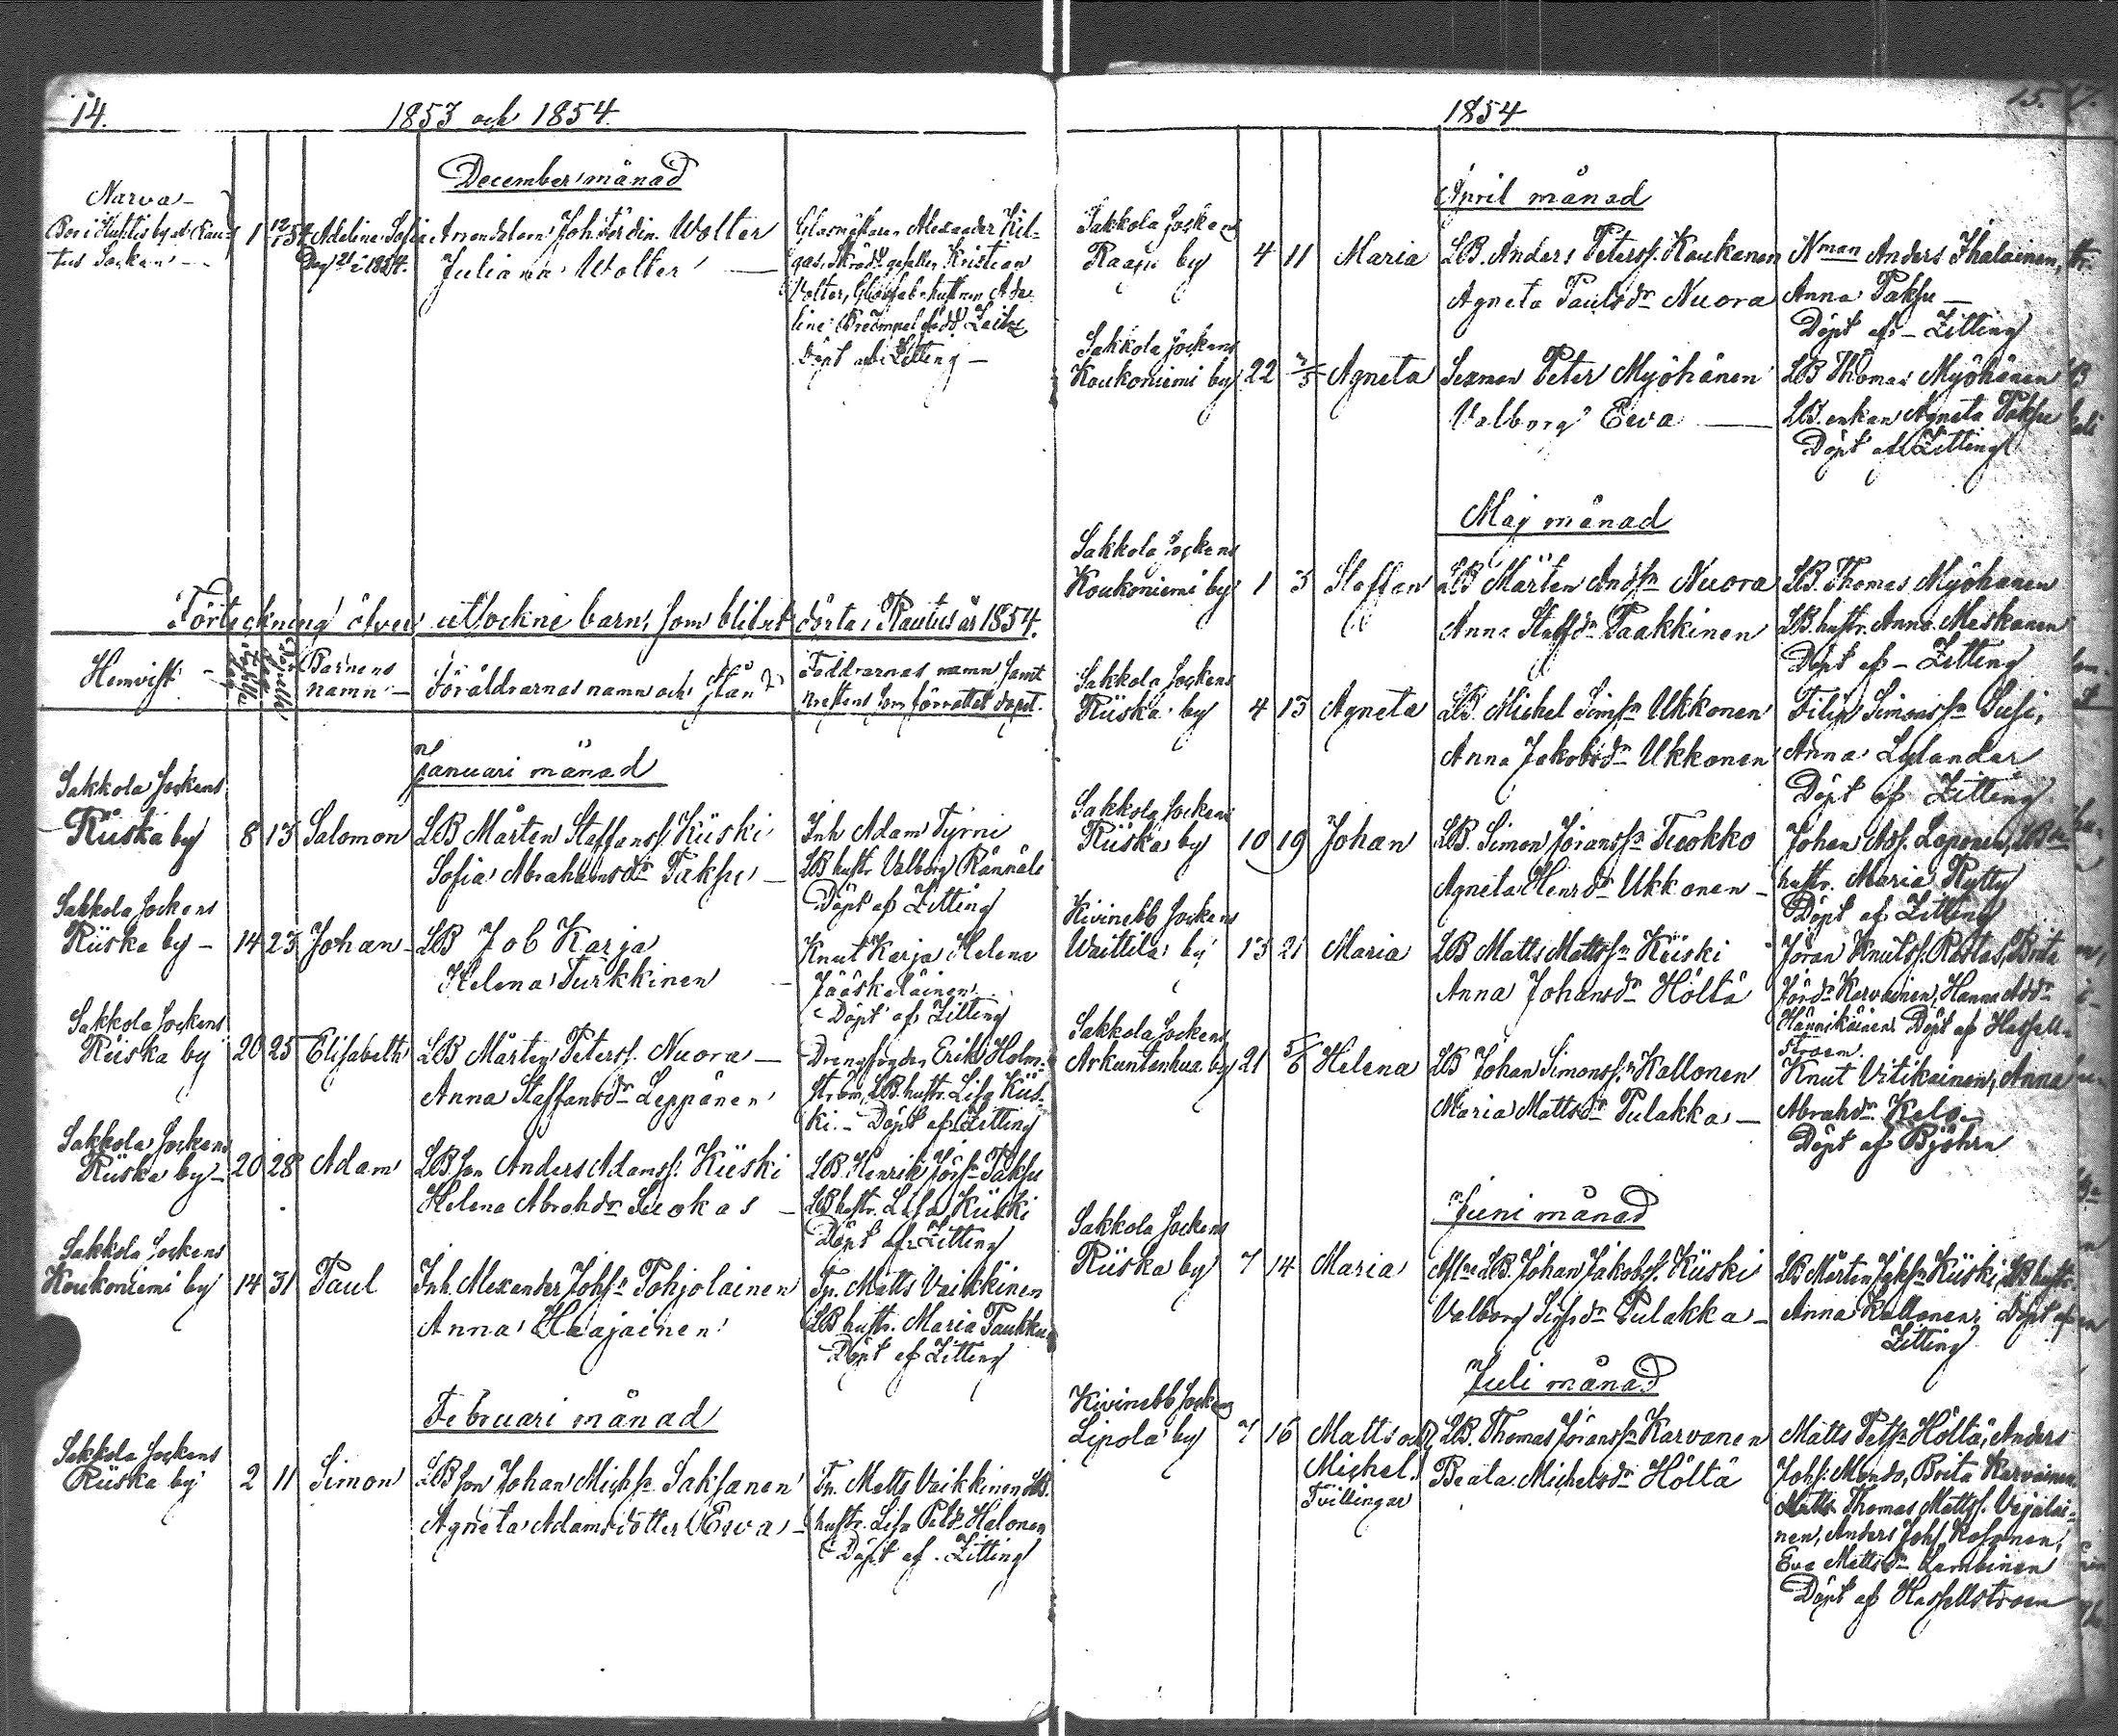 14.
1853 och 1854.
December månad
Narva
Bor i Huhtis by af Rau-
tus Socken
1 12/1 54 Adeline Sofia
Dag 21/2 1854.
Arrendatorn Joh Ferdin. Wolter
Juliana Wolter
Glasmästaren Alexander Kil-
gas, Skrädd. gesällen Kristian
Wolter, hustrun Ade-
line född Zeitz
Döpt af Zitting
Förteckning öfver utsockne barn, som blivit döpta i Rautus år 1854.
Hemvist
Födelse dag
Döpelse dag
Barnens
namn
Föräldrarnas namn och stånd
Faddrarnas namn samt
Prestens som förrättat dopet.
Januari månad
Sakkola Sockens
Riiska by 8 13 Salomon
LB Mårten Staffanss. Kiiski
Sofia Abrahamsdr Paksu
Inh Adam Tyrni
LB hustr Valborg Rännäli
Döpt af Zitting
Sakkola Sockens
Riiska by 14 23 Johan
LB Job Karja
Helena Turkkinen
Knut Karja Helena
Jääskeläinen
Döpt af Zitting
Sakkola Sockens
Riiska by 20 25 Elisabeth
LB Mårten Peterss. Nuora
Anna Staffansdr Leppänen
Drengfogden Erik Holm-
ström, LB. hustr. Lisa Kiis-
ki. Döpt af Zitting
Sakkola Sockens
Riiska by 20 28 Adam
LB. son Anders Adamss. Kiiski
Helena Abrahdr Suokas
LB. Henrik Jörsn Paksu
LB hustr. Lisa Kiiski
Döpt af Zitting
Sakkola Sockens
Koukoniemi by 14 31 Paul
Inh. Alexander Johsn Pohjolainen
Anna Haajainen
Tp. Matts Vaikkinen
LB hustr. Maria Paukku
Döpt af Zitting
Februari månad
Sakkola Sockens
Riiska by 2 11 Simon
LB son Johan Michsn Saksanen
Agneta Adamsdotter Ewa
Tp. Matts Vaikkinen LB.
hustr. Lisa Petdr Halonen
Döpt af Zitting
15.
1854
April månad
Sakkola Sockens
Raaju by 4 11 Maria
LB. Anders Peterss. Kaukanen
Agneta Paulsdr Nuora
Nman Anders Ihalainen,
Anna Paksu
Döpt af Zitting
Sakkola Sockens
Koukoniemi by 22 2/5 Agneta
Sexman Peter Myöhänen
Valborg Ewa
LB Thomas Myöhänen
LB. enkan Agneta Paksu
Döpt af Zitting
Maj månad
Sakkola Sockens
Koukoniemi by 1 3 Staffan
LB Mårten Andsn Nuora
Anna Staffdr Paakkinen
LB. Thomas Myöhänen
LB. hustr. Anna Meskanen
Döpt af Zitting
Sakkola Sockens
Riiska by 4 13 Agneta
LB. Michel Simsn Ukkonen
Anna Jakobsdr Ukkonen
Filip Simonssn Susi,
Anna Lylander
Döpt af Zitting
Sakkola Sockens
Riiska by 10 19 Johan
LB. Simon Jöranssn Tuokko
Agneta Henrdr Ukkonen
Johan Ads. Laponen, LB
hustr. Maria Rytty
Döpt af Zitting
Kivinebb Sockens
Waittila by 13 21 Maria
LB Matts Mattssn Kiiski
Anna Johansdr Höltä
Jöran Knutss. Rastas, Brita
Jördr Karvainen, Hanna Addr
Hännikäinen Döpt af Hassell-
stroem.
Sakkola Sockens
Arkuntanhua by 21 5/6 Helena
LB Johan Simonss. Kallonen
Maria Mattsdr Pulakka
Knut Vitikainen, Anna
Abrahdr Kelo
Döpt af Björkn
Juni månad
Sakkola Sockens
Riiska by 7 14 Maria
LB. Johan Jakobss. Kiiski
Valborg Simsdr Pulakka
LB Mårten Jaksn Kiiski, LB hustr.
Anna Kallonen, Döpt af
Zitting
Juli månad
Kivinebb Sockens
Lipola by 7 16 Matts och
Michel.
Tvillingar
LB. Thomas Jöranssn Karvanen
Beata Michelsdr Höltä
Matts Petsn Höltä, Anders
Johs. Mando, Brita Karvainen
Matts Thomas Mattss. Vejalai-
nen, Anders Johs Kosonen,
Eva Mattsdr Lambinen
Döpt af Hassellstroem